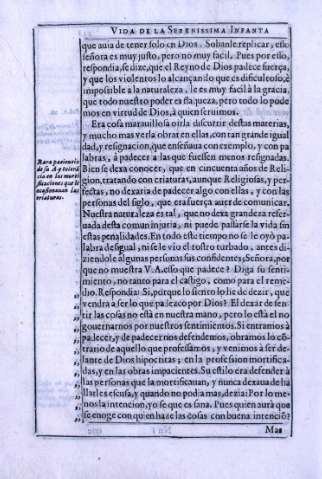 VIDA DE LA SERENISSIMA INFANTA
que auia de tener solo en DIOS. Solianle replicar, esso
señora es muy justo, pero no muy facil. Pues por esso,
respondia, se dize, que el Reyno de Dios padece fuerça,
y que los violentos lo alcançan: lo que es dificultoso, è
imposible a la naturaleza, le es muy facil à la gracia,
que todo nuestro poder es flaqueza, pero todo lo pode
mos en virtud de Dios, à quien seruimos.
Era cosa marauillosa oirla discurrir destas materias,
y mucho mas verla obrar en ellas, con tan grande igual
dad, y resignacion, que enseñaua con exemplo, y con pa
labras, à padecer a las que fuessen menos resignadas.
Bien se dexa conocer, que en cincuenta años de Reli
gion, tratando con criaturas, aunque Religiosas, y per
fectas, no dexaria de padecer algo con ellas, y con las
personas del siglo, que era fuerça auer de comunicar.
Nuestra naturaleza es tal, que no dexa grandeza reser
uada desta comun injuria, ni puede passarse la vida sin
estas penalidades. En todo este tiempo no se le oyò pa
labra desigual, ni se le viò el rostro turbado, antes di-
ziendole algunas personas sus confidentes; Señora, por
que no muestra V. A. esso que padece? Diga su senti-
miento, no tanto para el castigo, como para el reme-
dio. Respondia: Si, porque lo siento lo he de dezir, que
vendra a ser lo que padezco por Dios? El dexar de sen-
tir las cosas no està en nuestra mano, pero lo està el no
gouernarnos por nuestros sentimientos. Si entramos à
padecer, y de padecer nos defendemos, obramos lo cõ-
trario de aquello que professamos, y venimos à ser de-
lante de Dios hipocritas; en la profession mortifica-
das, y en las obras impacientes. Su estilo era defender à
las personas que la mortificauan, y nunca dexaua de ha
llarles escusa, y quando no podia mas, dezia: Por lo me
nos la intencion, yo se que es sana. Pues quien aurà que
se enoge con quien haze las cosas con buena intenciõ?
Mas
Rara paciencia
de su A. y tolerã
cia en las morti
ficaciones que le
ocasionauan las
criaturas.